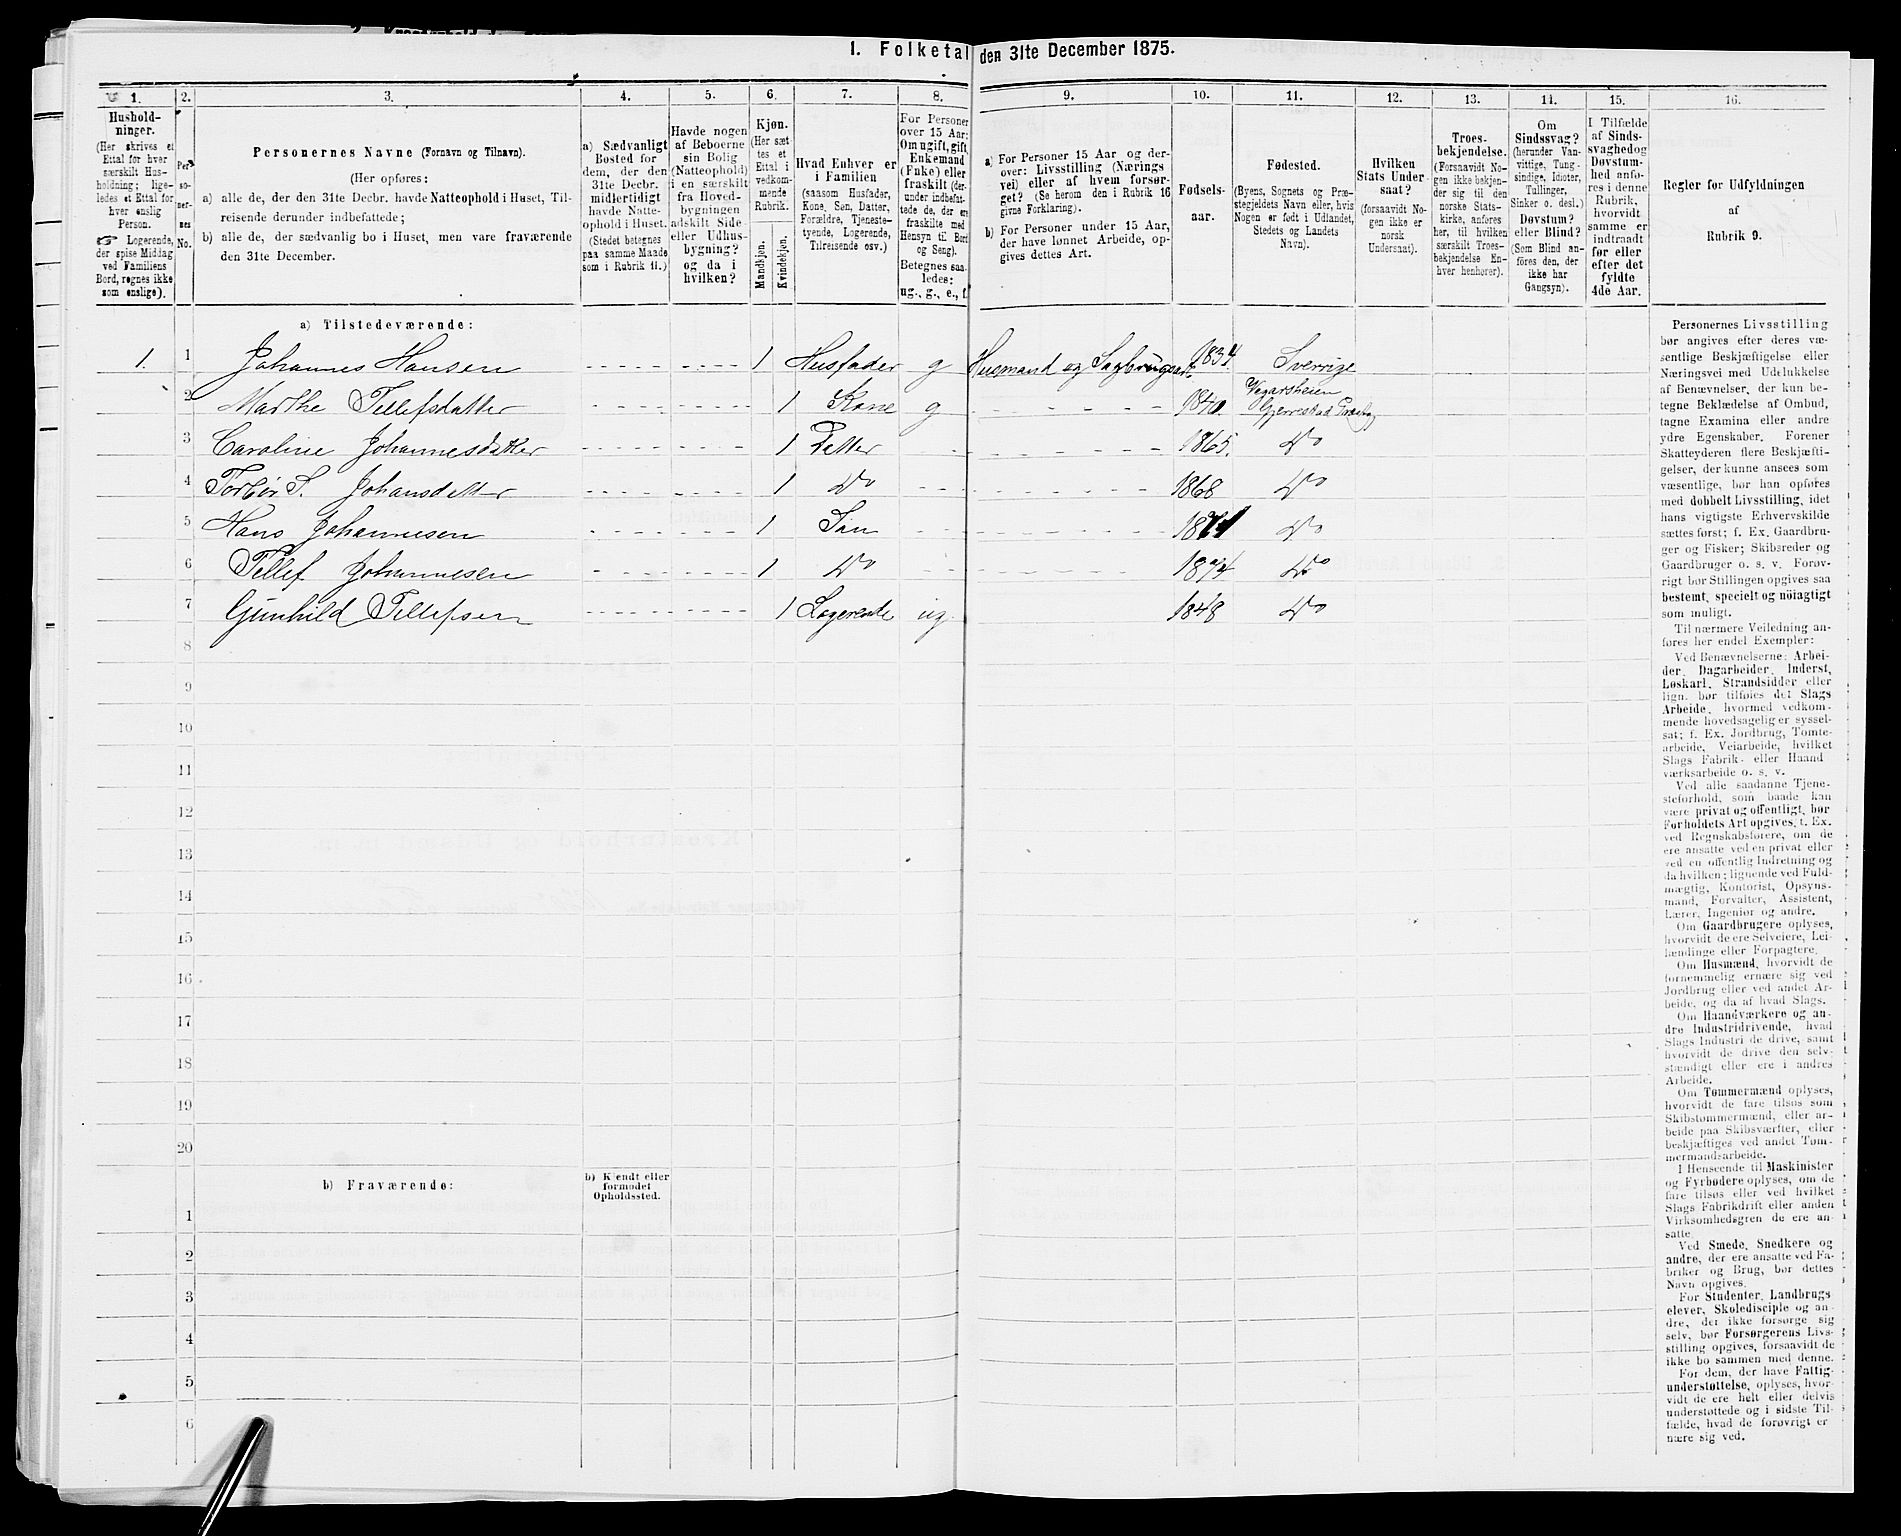 1. Folketal den 31te December 1875.
1. 2. 3. 4. 5. 6. 7. 8. 9. 10. 11. 12. 13. 14. 15. 16.
Hushold-
ninger.
(Her skrives et
Ettal for hver
særskilt Hus-
holdning; lige-
ledes et Ettal for
hver enslig
Person.
☞ Logerende,
der spise Middag
ved Familiens
Bord, regnes ikke
som enslige).
Per-
so-
ner-
nes
No.
Personernes Navne (Fornavn og Tilnavn).
(Her opføres:
a) alle de, der den 31te Decbr. havde Natteophold i Huset, Til-
reisende derunder indbefattede;
b) alle de, der sædvanlig bo i Huset, men vare fraværende
den 31te December.
a) Sædvanligt
Bosted for
dem, der den
31te Decbr.
midlertidigt
havde Natte-
ophold i Huset.
(Stedet betegnes
paa samme Maade
som i Rubrik 11.)
Havde nogen
af Beboerne
sin Bolig
(Natteophold)
i en særskilt
fra Hoved-
bygningen
adskilt Side-
eller Udhus-
bygning?
og da i
hvilken?
Kjøn.
(Her sæt-
tes et
Ettal i
vedkom-
mende
Rubrik.
Mandkjøn.
Kvindekjøn.
Hvad Enhver er
i Familien
(saasom Husfader,
Kone, Søn, Datter,
Forældre, Tjeneste-
tyende, Logerende,
Tilreisende osv.)
For Personer
over 15 Aar:
Om ugift, gift,
Enkemand
(Enke) eller
fraskilt (der-
under indbefat-
tede de, der ere
fraskilte med
Hensyn til Bord
og Seng).
Betegnes saa-
ledes:
ug., g., e., f.
a) For Personer 15 Aar og der-
over: Livsstilling (Nærings-
vei) eller af hvem forsør-
get? (Se herom den i Rubrik 16
givne Forklaring).
b) For Personer under 15 Aar,
der have lønnet Arbeide, op-
gives dettes Art.
Fødsels-
aar.
Fødested.
(Byens, Sognets og Præ-
stegjeldets Navn eller, hvis
Nogen er født i Udlandet,
Stedets og Landets
Navn).
Hvilken
Stats Under-
saat?
(forsaavidt No-
gen ikke er
norsk
Undersaat).
Troes-
bekjendelse.
(Forsaavidt No-
gen ikke bekjen-
der sig til den
norske Stats-
kirke, anføres
her, til hvilken
særskilt Troes-
bekjendelse En-
hver henhører).
Om
Sindssvag?
(herunder Van-
vittige, Tung-
sindige, Idioter,
Tullinger,
Sinker o. desl.)
Døvstum?
eller Blind?
(Som Blind an-
føres den, der
ikke har
Gangsyn).
I Tilfælde
af Sinds-
svaghed og
Døvstum-
hed anfø-
res i denne
Rubrik,
hvorvidt
samme er
indtraadt
før eller
efter det
fyldte
4de Aar.
Regler før Udfyldningen
af
Rubrik 9.
a) Tilstedeværende:
1. 1 Johannes Hansen 1 Husfader g Husmand og 1834 Sverrige
2 Marthe Tellefsdatter 1 Kone g 1840. Vegarsheien
Gjerrestad
3 Caroline Johannesdatter 1 Datter 1865. Do
4 Torbør S. Johansdatter 1 Do 1868 Do
5 Hans Johannesen 1 Søn 1871 Do
6 Tellef Johannesen 1 Do 1874 Do
7 Gunhild Tellefsen 1 Logerende ug 1848 Do
8
9
10
11
12
13
14
15
16
17
18
19
20
b) Fraværende:
b) Kjendt eller
formodet
Opholdssted.
1
2
3
4
5
6
Personernes Livsstilling
bør angives efter deres væ-
sentlige Beskjæftigelse eller
Næringsvei med Udelukkelse
af Benævnelser, der kun be-
tegne Beklædelse af Ombud,
tagne Examina eller andre
ydre Egenskaber. Forener
Skatteyderen flere Beskjæfti-
gelser, der kunne ansees som
væsentlige, bør han opføres
med dobbelt Livsstilling, idet
hans vigtigste Erhvervskilde
sættes først; f. Ex. Gaardbru-
ger og Fisker; Skibsreder og
Gaardbruger o. s. v. Forøv-
rigt bør Stillingen opgives saa
bestemt, specielt og nøiagtigt
som muligt.
Til nærmere Veiledning an-
føres her endel Exempler:
Ved Benævnelserne: Arbei-
der, Dagarbeider, Inderst,
Løskarl, Strandsidder eller
lign. bør tilføies det Slags
Arbeide, hvormed vedkom-
mende hovedsagelig er syssel-
sat; f. Ex. Jordbrug, Tomte-
arbeide, Veiarbeide, hvilket
Slags Fabrik- eller Haand
værksarbeide o. s. v.
Ved alle saadanne Tjene-
steforhold, som baade kan
være privat og offentligt, bør
Forholdets Art opgives, f. Ex.
ved Regnskabsførere, om de
ere ansatte ved en privat eller
ved en offentlig Indretning og
da hvilken; lignende ved Fuld-
mægtig, Kontorist, Opsyns-
mand, Forvalter, Assistent,
Lærer, Ingeniør og andre.
Om Gaardbrugere oplyses,
hvorvidt de ere Selveiere, Lei-
lændinge eller Forpagtere.
Om Husmænd, hvorvidt de
fornemmelig ernære sig ved
Jordbrug eller ved andet Ar-
beide, og da af hvad Slags.
Om Haandværkere og an-
dre Industridrivende, hvad
Slags Industri de drive, samt
hvorvidt de drive den selv-
stændigt eller ere i andres
Arbeide.
Om Tømmermænd oplyses,
hvorvidt de fare tilsøs som
Skibstømmermænd, eller ar-
beide paa Skibsværfter, eller
beskjæftiges ved andet Tøm-
mermandsarbeide.
I Henseende til Maskinister
og Fyrbødere oplyses, om de
fare tilsøs eller ved hvilket
Slags Fabrikdrift eller anden
Virksomhedsgren de ere an-
satte.
Ved Smede, Snedkere og
andre, der ere ansatte ved Fa-
briker og Brug, bør dettes
Navn opgives.
For Studenter, Landbrugs-
elever, Skoledisciple og an-
dre, der ikke forsørge sig
selv, bør Forsørgerens Livs-
stilling opgives, forsaavidt de
ikke bo sammen med denne.
For dem, der have Fattig-
understøttelse, oplyses, hvor-
vidt de ere helt eller delvis
understøttede og i sidste Til-
fælde, hvad de forøvrigt er
nære sig ved.